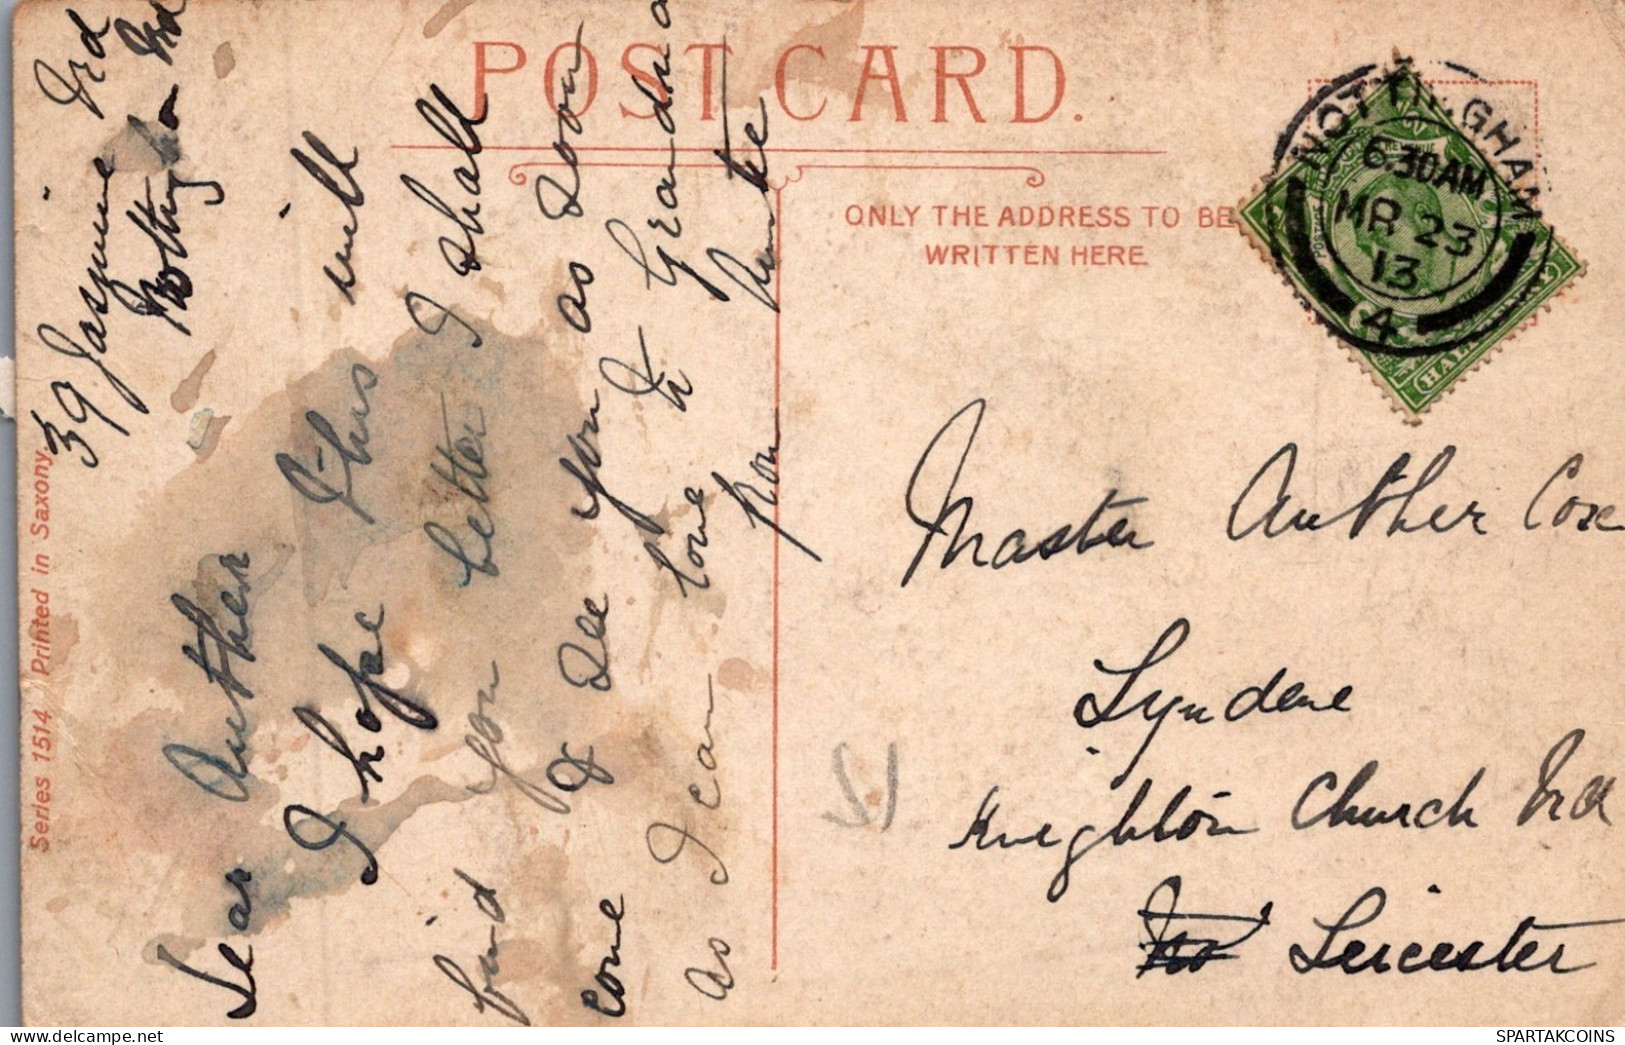 POST CARD.
ONLY THE ADDRESS TO BE
WRITTEN HERE
NOTTINGHAM
6.30AM
MR 23
13
4
HALF
Series 1514 Printed in Saxony.
39 Jasmine Ird
Dear Auther
I hope this will
find you better I shall
come & see you as soon
as I can love to Grandma
from
Master Auther Cox
Lyndene
Knighton Church Rd
Leicester
SPARTAKCOINS
WWW.DELCAMPE.NET